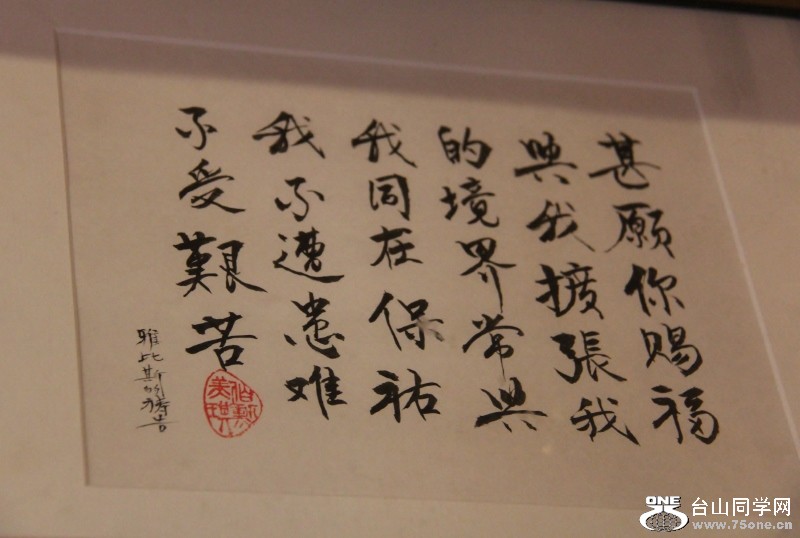 甚願你賜福
與我擴張我
的境界常與
我同在保祐
我不遭患难
不受艱苦
雅比斯的禱告
ONE 台山同学网
www.75one.cn